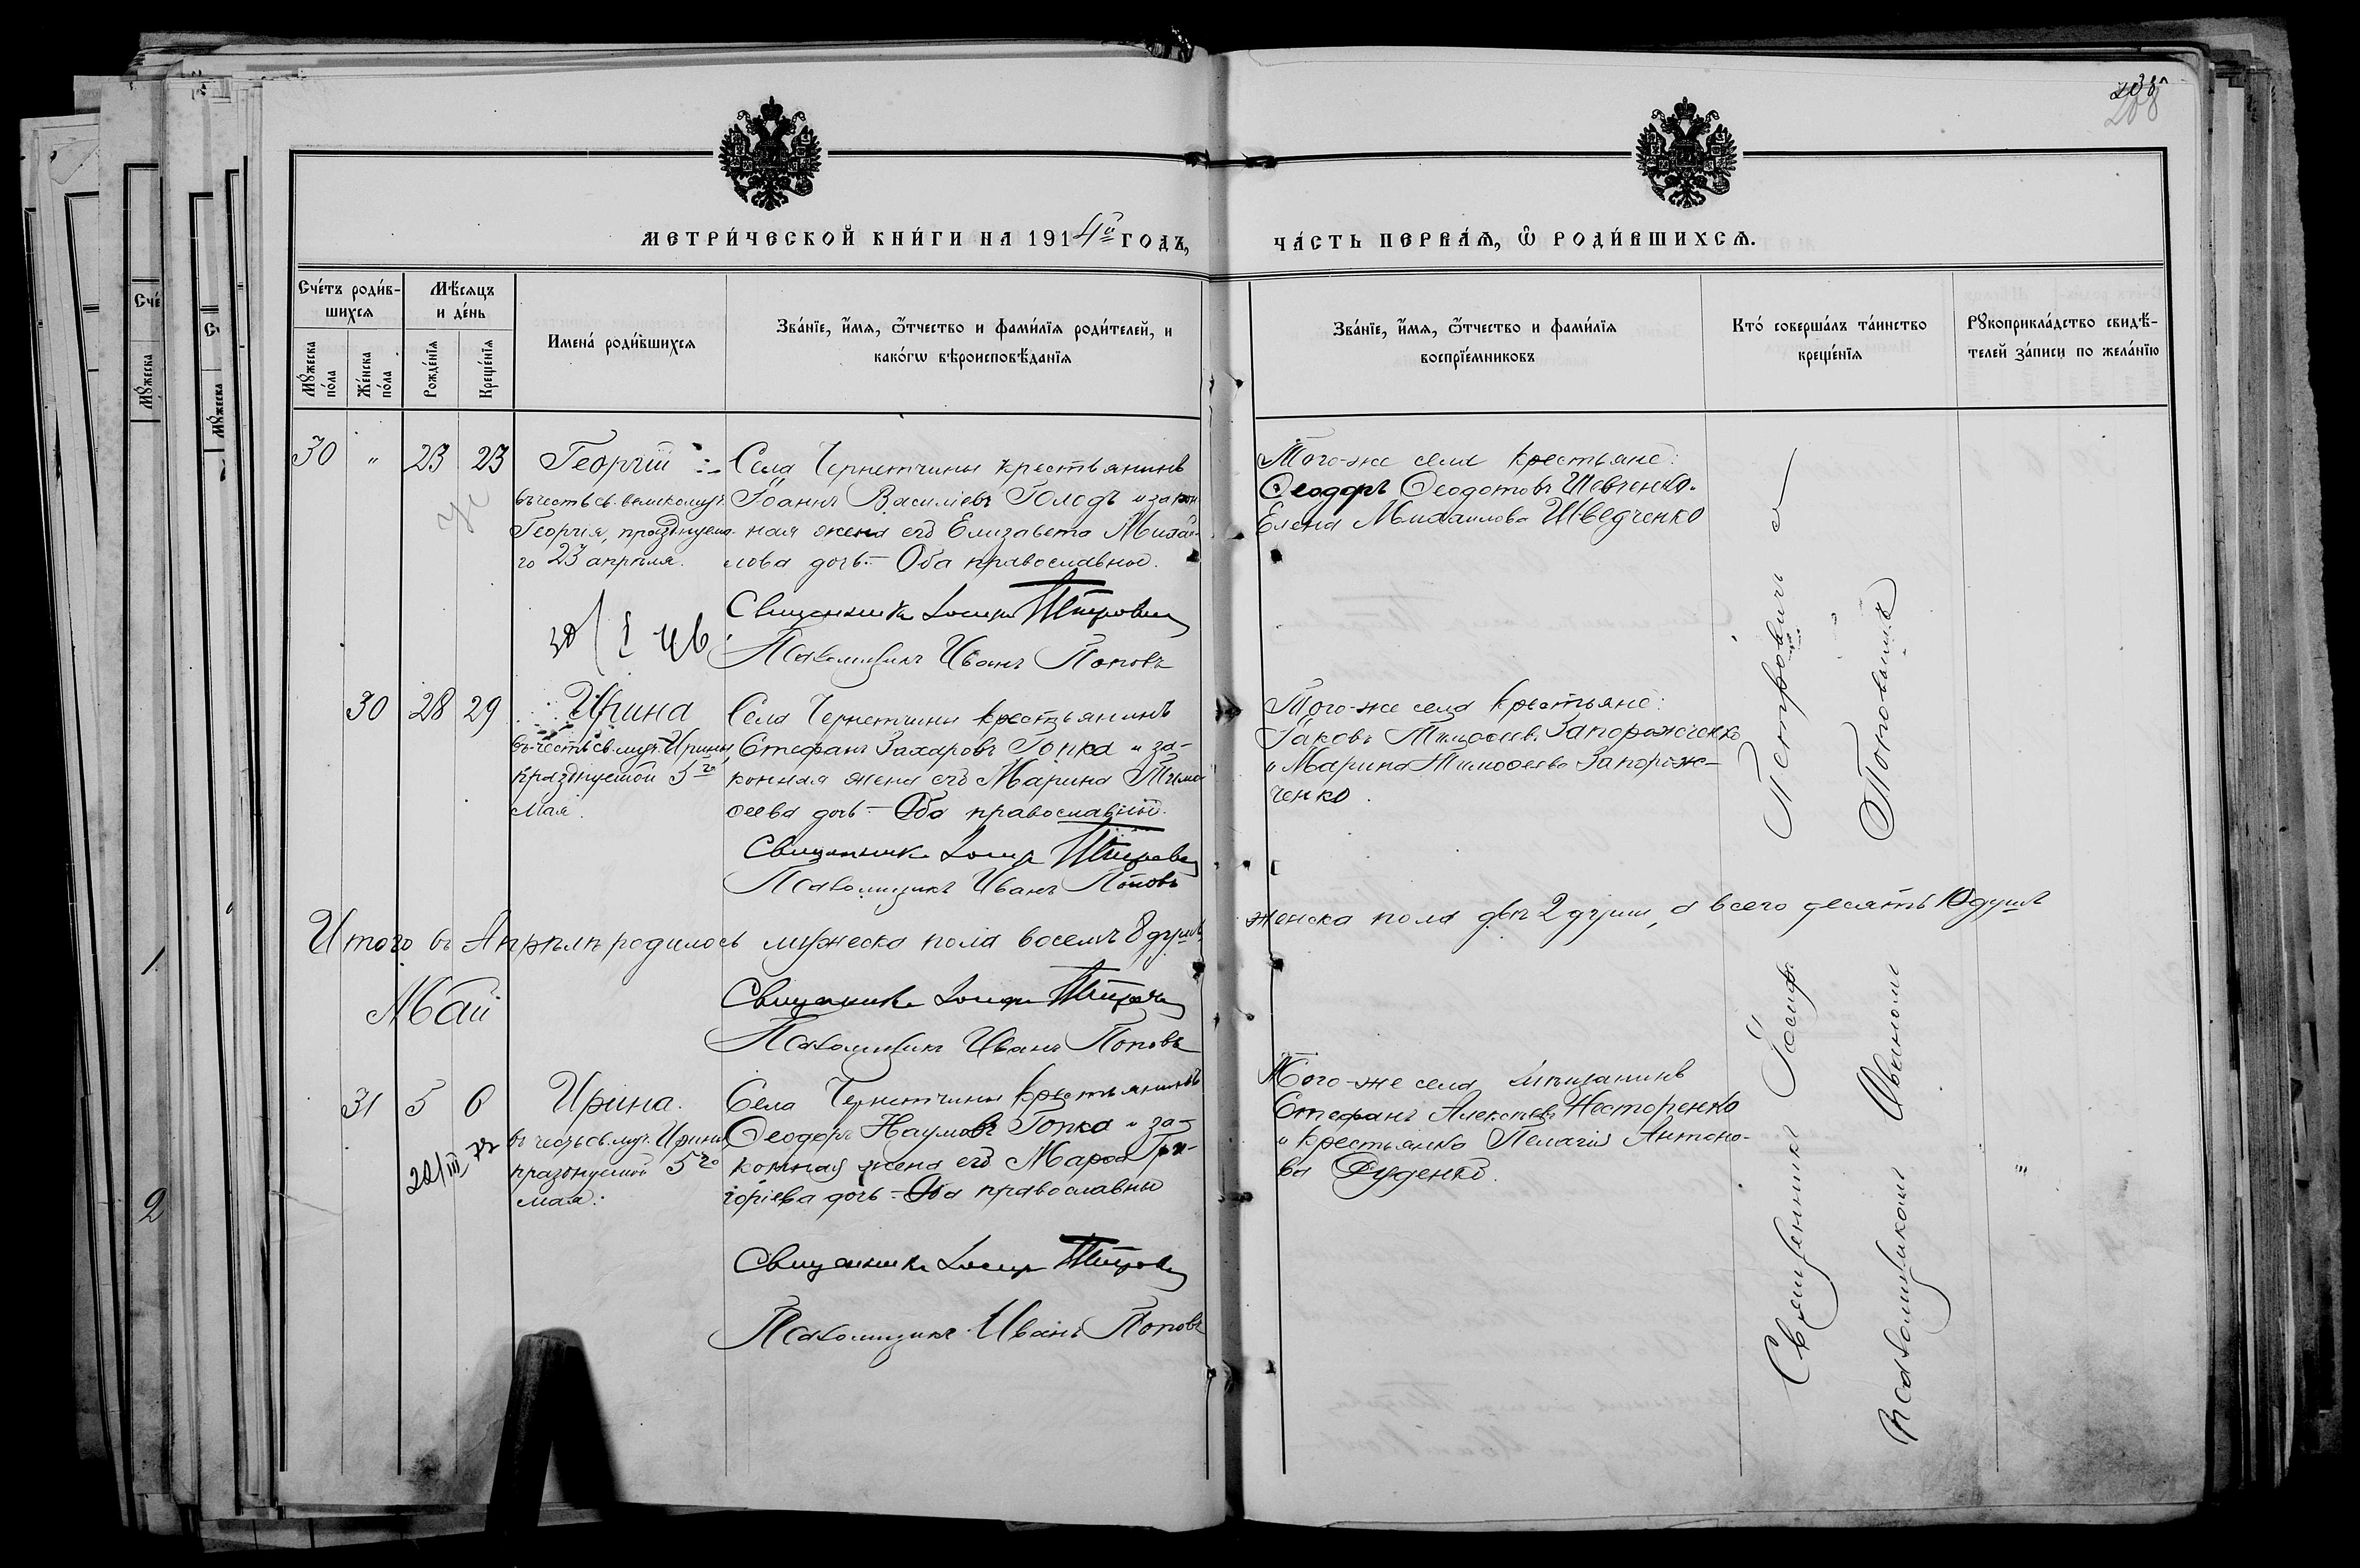 208
МЕТРИ́ЧЕСКОЙ КНИ́ГИ НА 1914й ГОДЪ,
ЧА́СТЬ ПЕРВА́Я, Ѡ РОДИ́ВШИХСЯ.
Сче́тъ роди́вшихся
Мѣ́сяцъ и де́нь
Имена́ роди́вшихся
Зва́нїе, и́мя, ѻ҆́тчество и фами́лїя роди́телей, и
како́гѡ вѣроисповѣ́данїя
Мꙋ́жеска по́ла
Же́нска по́ла
Рожде́нїя
Креще́нїя
Зва́нїе, и́мя, ѻ҆́тчество и фами́лїя
воспрїе́мниковъ
Кто́ соверша́лъ та́инство
креще́нїя
Рꙋкоприкла́дство свидѣ́-
телей за́писи по жела́нїю
30 " 23 23 Георгій
въ честь св. великомуч.
Георгія, празднуема-
го 23 апрѣля.
Села Чернетчины крестьянинъ
Іоаннъ Василіевъ Голодъ и закон
ная жена его Елизавета Михаи-
лова дочь – Оба православные.
Священникъ Іосифъ Петровичъ
Псаломщикъ Иванъ Поповъ
Того-же села крестьяне:
Ѳеодоръ Ѳеодотовъ Шевченко.
Елена Михаилова Шведченко
30 28 29 Ирина
въ честь св. муч. Ирины,
празднуемой 5го
мая.
Села Чернетчины крестьянинъ
Стефанъ Захаровъ Гопка и за-
конная жена его Марина Тимо
ѳеева дочь – Оба православные.
Священникъ Іосифъ Петровичъ
Псаломщикъ Иванъ Поповъ
Того-же села крестьяне:
Іаковъ Тимоѳеев. Запорожченко
и Марина Тимоѳеева Запорож-
ченко.
Итого въ Апрѣлѣ родилось мужеска пола восемь 8 душъ,
женска пола двѣ 2 души, а всего десять 10 душъ
Священникъ Іосифъ Петровичъ
Псаломщикъ Иванъ Поповъ
Май
31 5 6 Ирина.
въ честь св. муч. Ирины
празднуемой 5го
мая.
Села Чернетчины крестьянинъ
Ѳеодоръ Наумовъ Гопка и за-
конная жена его Марѳа Гри-
горіева дочь – Оба православные
Священникъ Іосифъ Петровичъ
Псаломщикъ Иванъ Поповъ
Того-же села мѣщанинъ
Стефанъ Алексѣевъ Нестеренко
и крестьянка Пелагія Антоно-
ва Руденко.
Священникъ Іосифъ Петровичъ съ
Псаломщикомъ Иваномъ Поповымъ
1
2